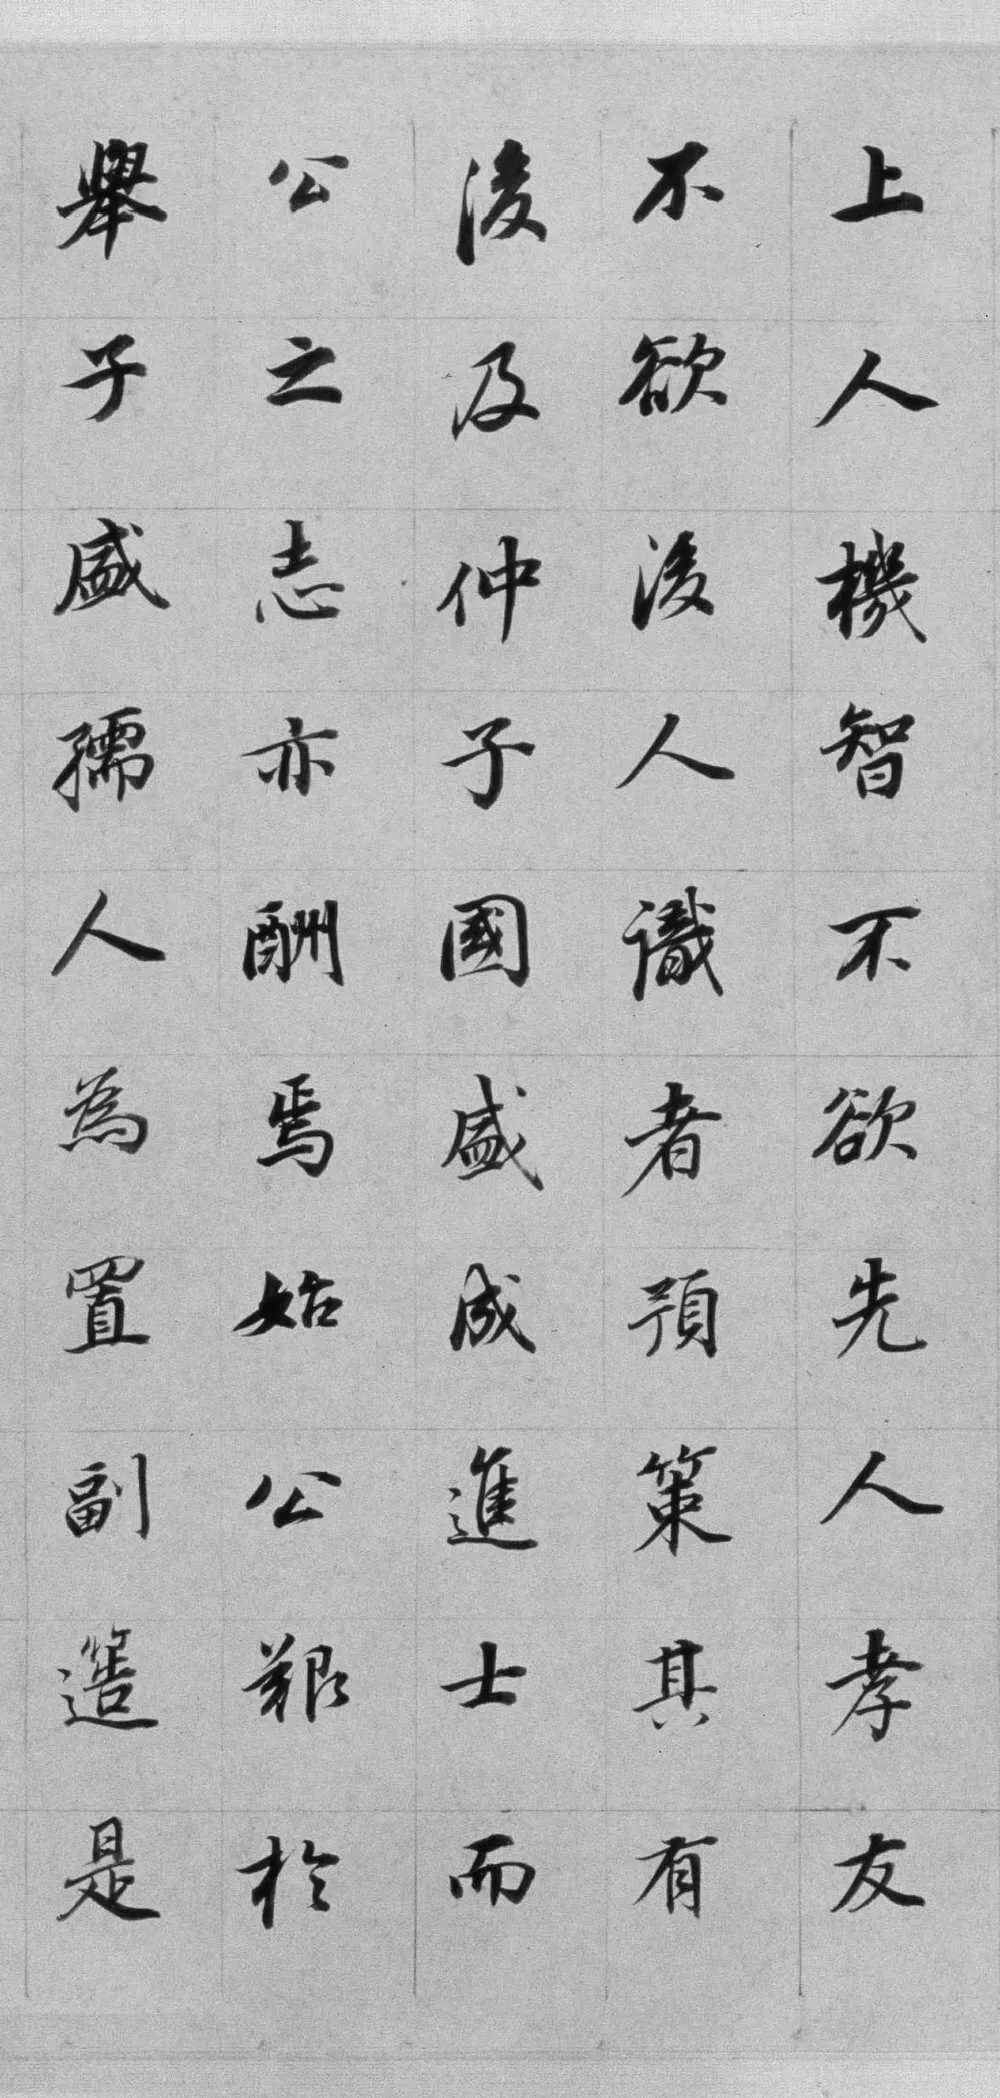 上人機智不欲先人孝友
不欲後人識者預策其有
後及仲子國盛成進士而
公之志亦酬焉始公艱於
舉子盛孺人為置副簉是